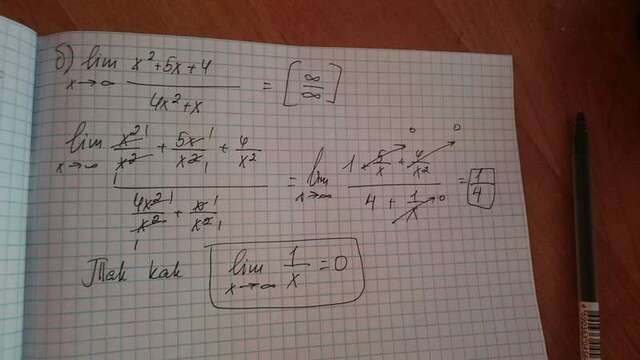 б) lim x→∞ (x²+5x+4)/(4x²+x) = [∞/∞]
lim x→∞ (x²/x² + 5x/x² + 4/x²)/(4x²/x² + x/x²) = lim x→∞ (1 + 5/x + 4/x²)/(4 + 1/x) = 1/4
Так как lim x→∞ 1/x = 0